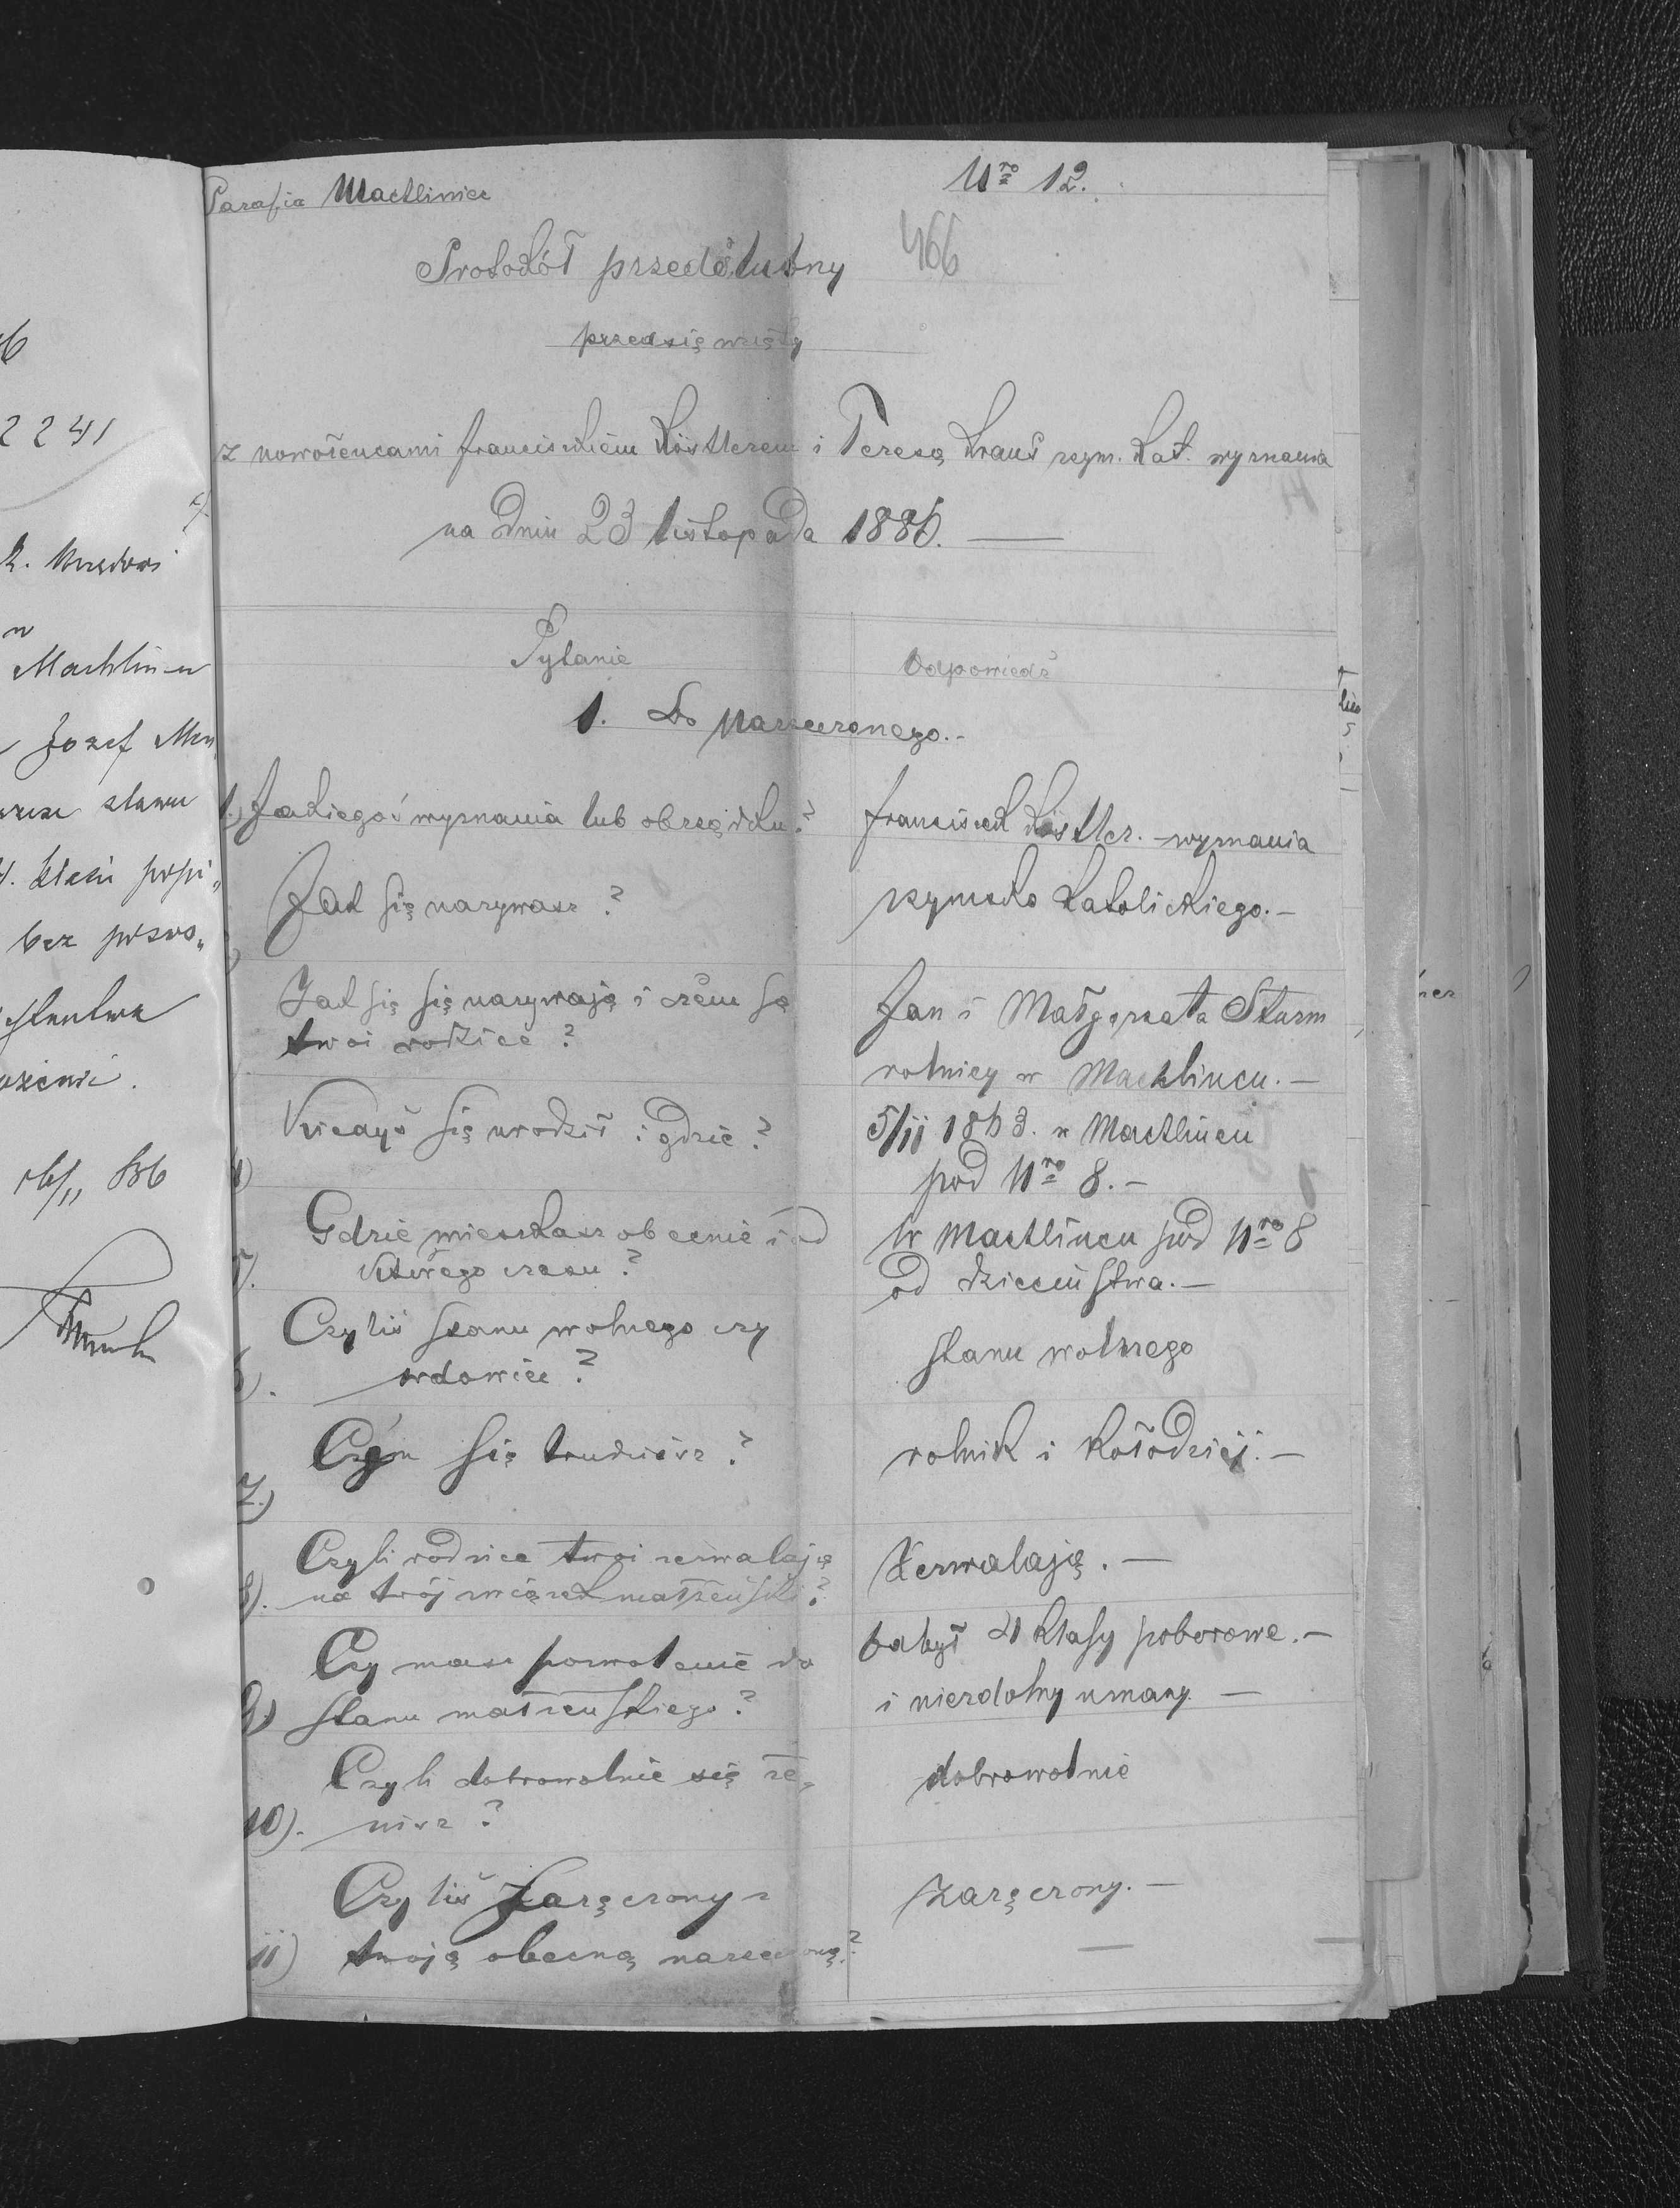 Parafia Machliniec
Nro 12.
Protokół przedślubny
466
przedsięwzięty
z nowożeńcami Franciszkiem Köstlerem i Teresą Kraus rzym. kat. wyznania
na dniu 23 listopada 1886.
Pytanie
Odpowiedź
1. Do Narzeczonego.-
1.) Jakiegoś wyznania lub obrządku?
Franciszek Köstler. - wyznania
Jak się nazywasz?
rzymsko katolickiego. -
Jak się się nazywają i czem są
twoi rodzice?
Jan i Małgorzata Sturm
rolnicy w Machlincu. -
Kiedyś się urodził i gdzie?
5/11 1863. w Machlincu
pod Nro 8. -
Gdzie mieszkasz obecnie i od
którego czasu?
W Machlincu pod Nro 8
od dzieciństwa. -
Czyliś stanu wolnego czy
wdowiec?
stanu wolnego
7.)
Czém się trudnisz?
rolnik i kołodziéj. -
8). Czyli rodzice twoi zezwalają
na twój związek małżeński?
Zezwalają. -
9.) Czy masz pozwolenie do
stanu małżeńskiego?
Odbył 4 klasy poborowe. -
i niezdolny uznany -
Czyli dobrowolnie się że„
10). nisz?
dobrowolnie
Czyliś zaręczony z
11) twoją obecną narzeczoną?
zaręczony. -
2241
Machlin
Józef
stanu
bez pozwo„